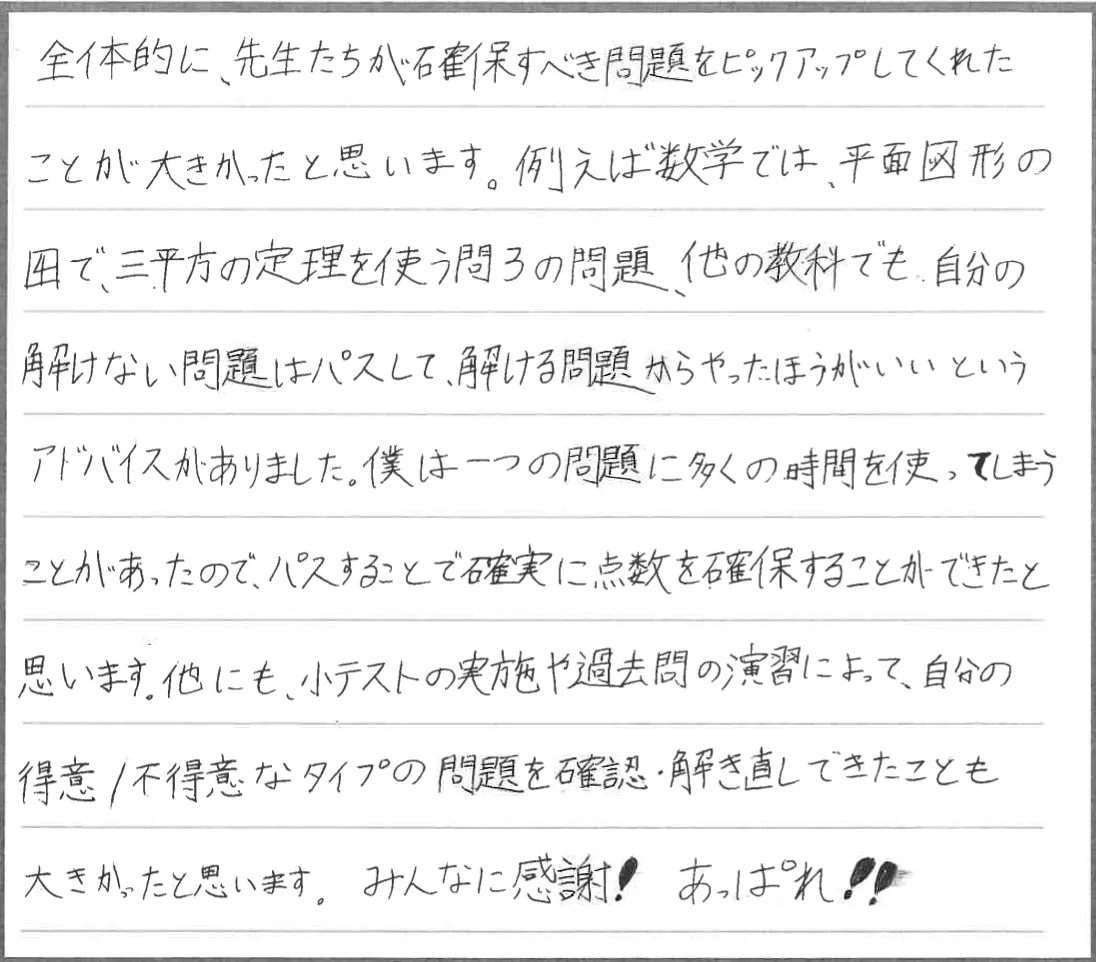 全体的に、先生たちが確保すべき問題をピックアップしてくれた
ことが大きかったと思います。例えば数学では、平面図形の
四で、三平方の定理を使う問3の問題、他の教科でも、自分の
解けない問題はパスして、解ける問題からやったほうがいいという
アドバイスがありました。僕は一つの問題に多くの時間を使ってしまう
ことがあったので、パスすることで確実に点数を確保することができたと
思います。他にも、小テストの実施や過去問の演習によって、自分の
得意/不得意なタイプの問題を確認・解き直しできたことも
大きかったと思います。 みんなに感謝! あっぱれ!!